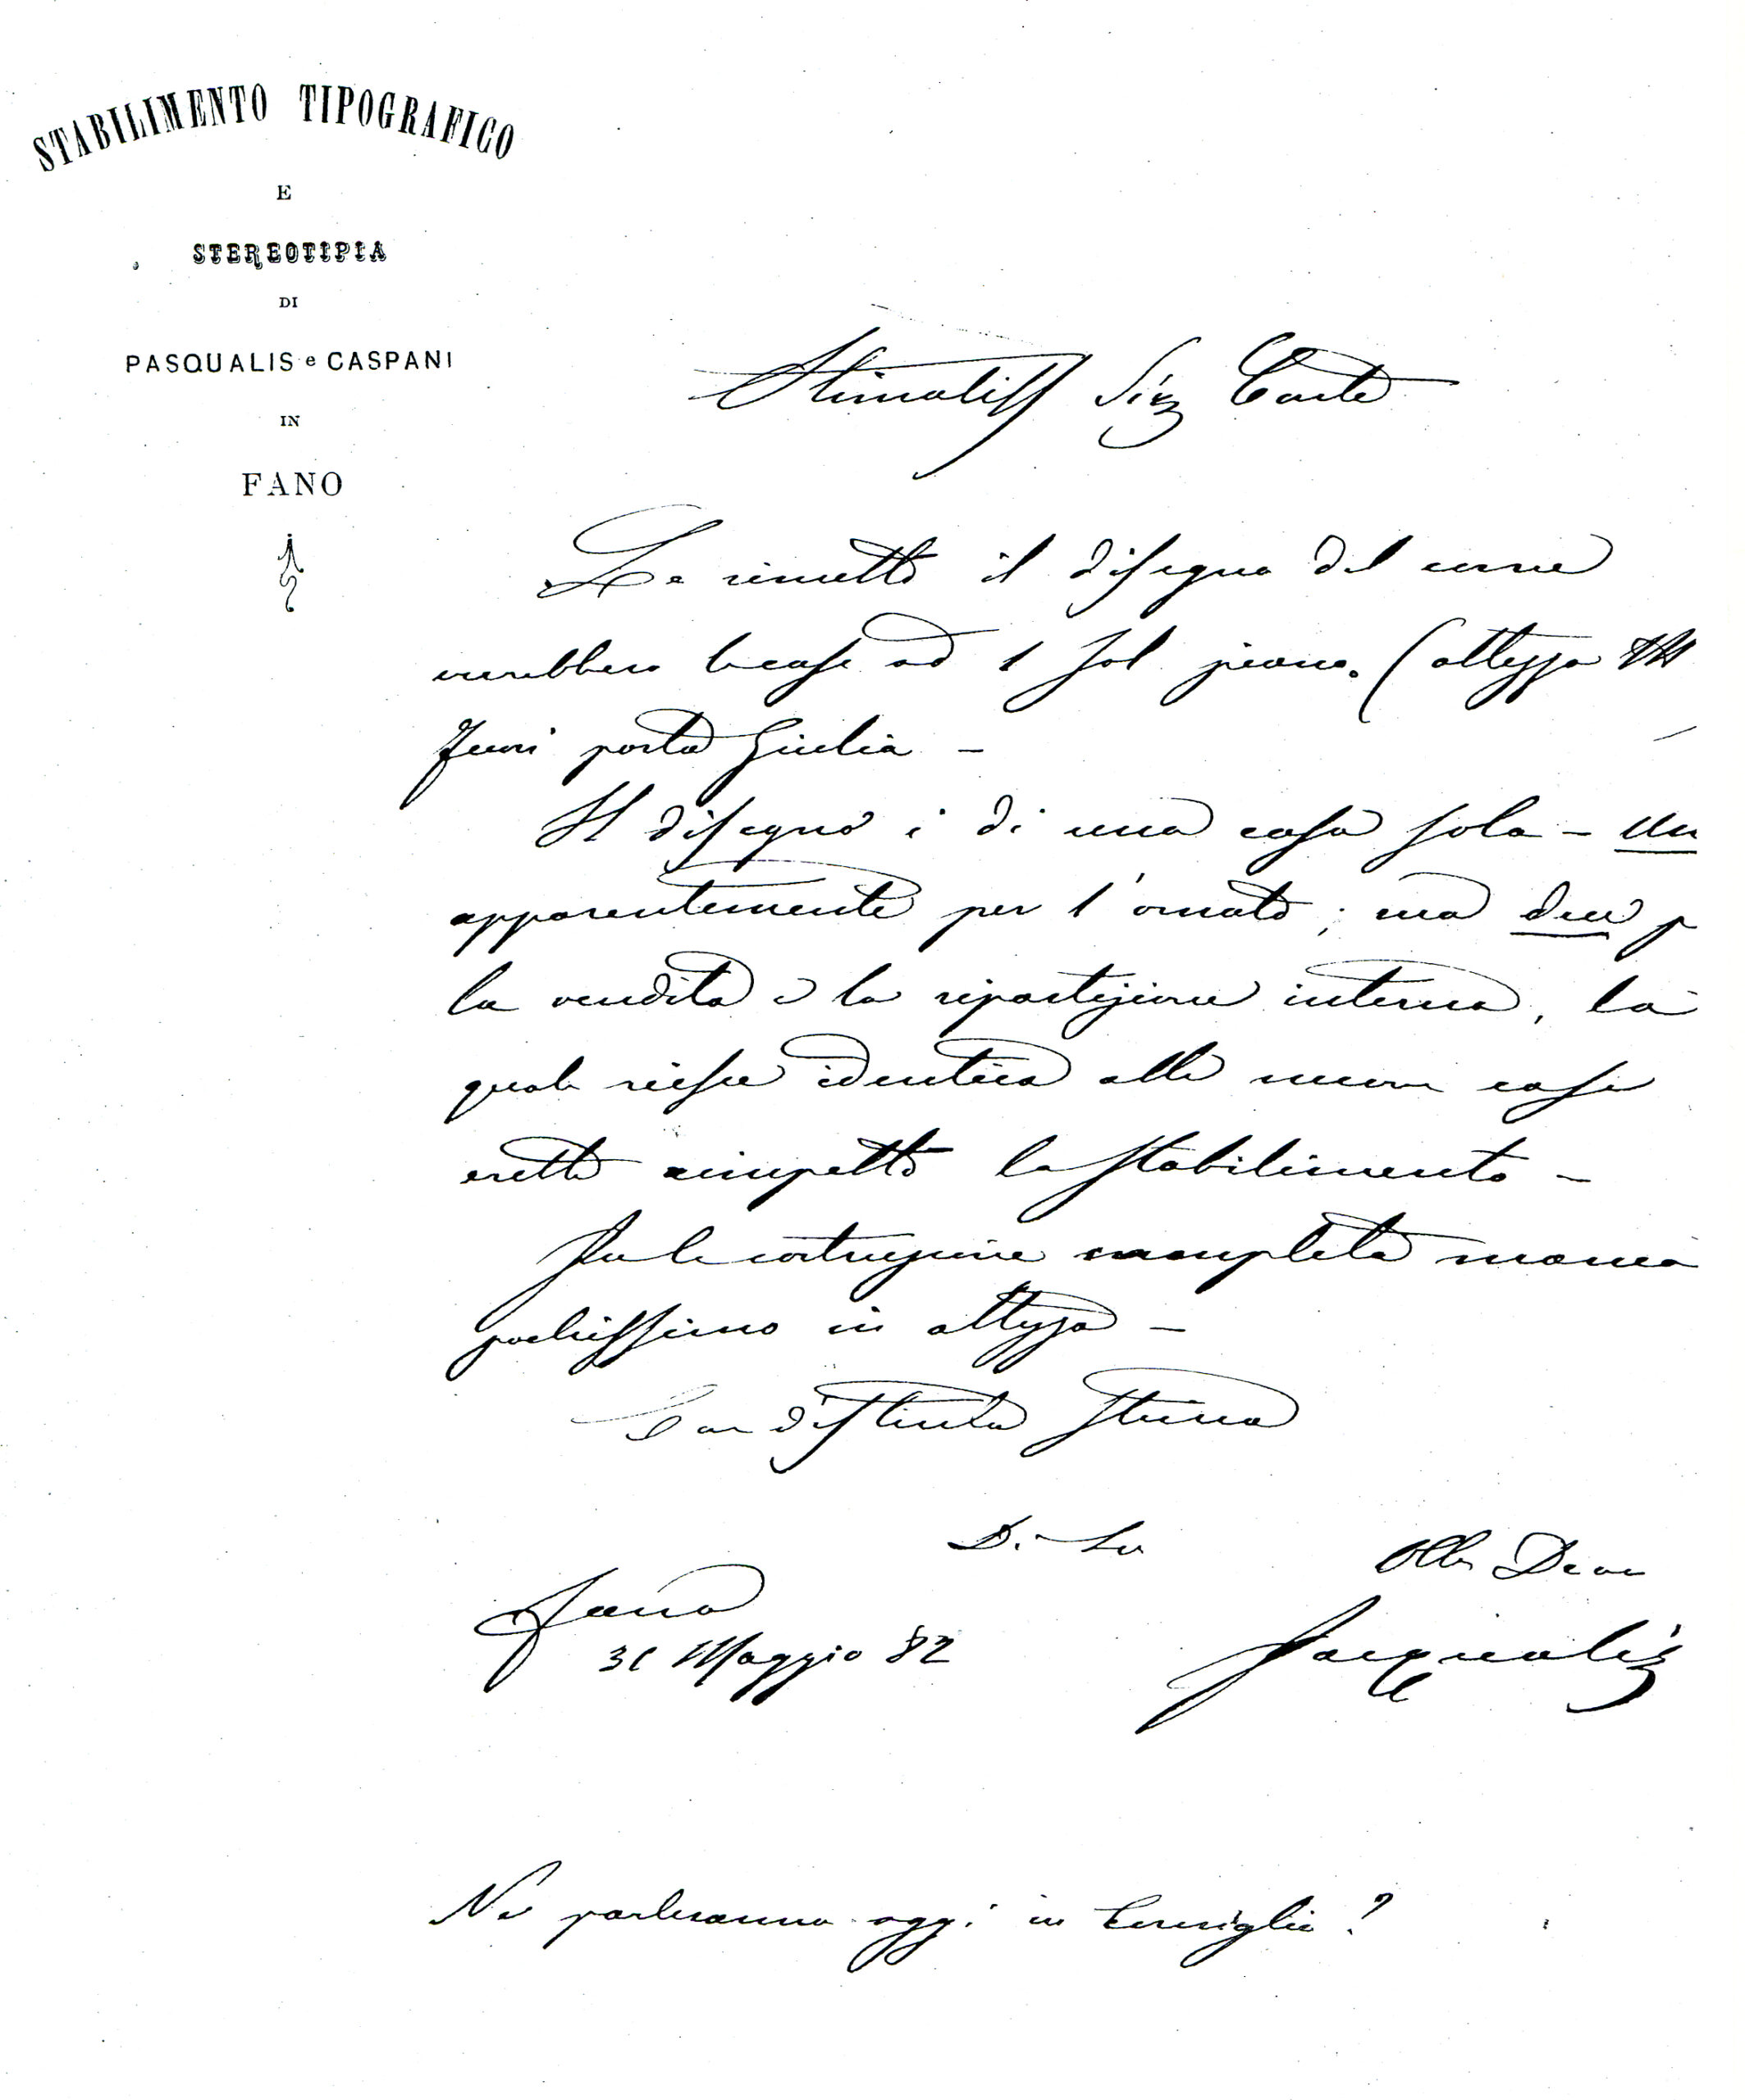 STABILIMENTO TIPOGRAFICO
E
STEREOTIPIA
DI
PASQUALIS e CASPANI
IN
FANO
Stimatiss Sig Conte
Le rimetto il disegno del come
verrebbero le case ad 1 sol piano. (altezza
fuori porta Giulia –
Il disegno è di una casa sola – una
apparentemente per l'ornato; ma due p
la vendita e la ripartizione interna, la
quale riesce identica alle nuove case
erette rimpetto lo Stabilimento –
Per la costruzione completa manca
pochissimo in altezza –
Con distinta stima
Di Lei
Obb Dev
Fano
31 Maggio 82
Pasqualis
Ne parleranno oggi in Consiglio?